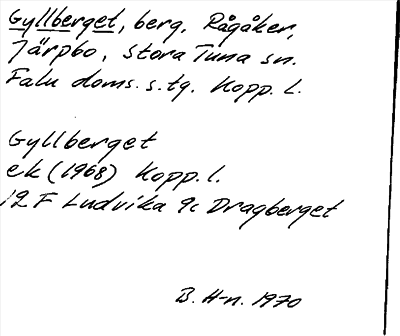 Gyllberget, berg, Rågåker,
Järpbo, Stora Tuna sn.
Falu doms. s. tg. Kopp. l.
Gyllberget
ek (1968) Kopp. l.
12 F Ludvika 9c Dragberget
B. H-n. 1970